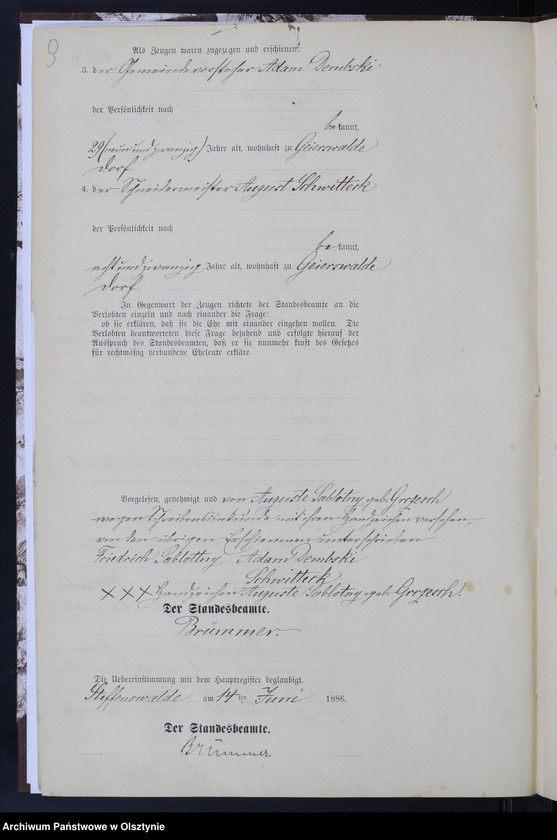 9
Als Zeugen waren zugezogen und erschienen:
3. der Gemeindevorsteher Adam Dembski
der Persönlichkeit nach
be kannt,
29 (neunundzwanzig) Jahre alt, wohnhaft zu Geierswalde
Dorf
4. der Schneidermeister August Schwitteck
der Persönlichkeit nach
be kannt,
achtundzwanzig Jahre alt, wohnhaft zu Geierswalde
Dorf
In Gegenwart der Zeugen richtete der Standesbeamte an die
Verlobten einzeln und nach einander die Frage:
ob sie erklären, daß sie die Ehe mit einander eingehen wollen. Die
Verlobten beantworteten diese Frage bejahend und erfolgte hierauf der
Ausspruch des Standesbeamten, daß er sie nunmehr kraft des Gesetzes
für rechtmäßig verbundene Eheleute erkläre.
Vorgelesen, genehmigt und von Auguste Sablotny geb. Grzesch
wegen Schreibensunkunde mit ihrem Handzeichen versehen,
von den übrigen Erschienenen unterschrieben
Friedrich Sablottny Adam Dembski
Schwitteck
XXX Handzeichen Auguste Sablotny geb. Grzesch.
Der Standesbeamte.
Brümmer.
Die Uebereinstimmung mit dem Hauptregister beglaubigt.
Steffenswalde am 14ten Juni 1886.
Der Standesbeamte.
Brümmer.
Archiwum Państwowe w Olsztynie